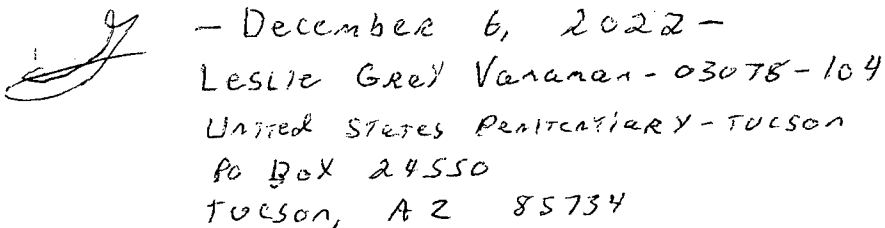 - December 6, 2022 -
Leslie Grey Vanaman - 03078-104
United States Penitentiary - Tucson
PO Box 24550
Tucson, AZ 85734